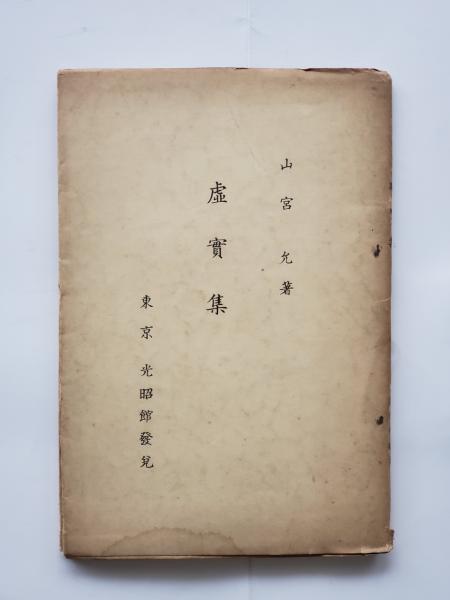 山宮允著
虛實集
東京光昭館發兌